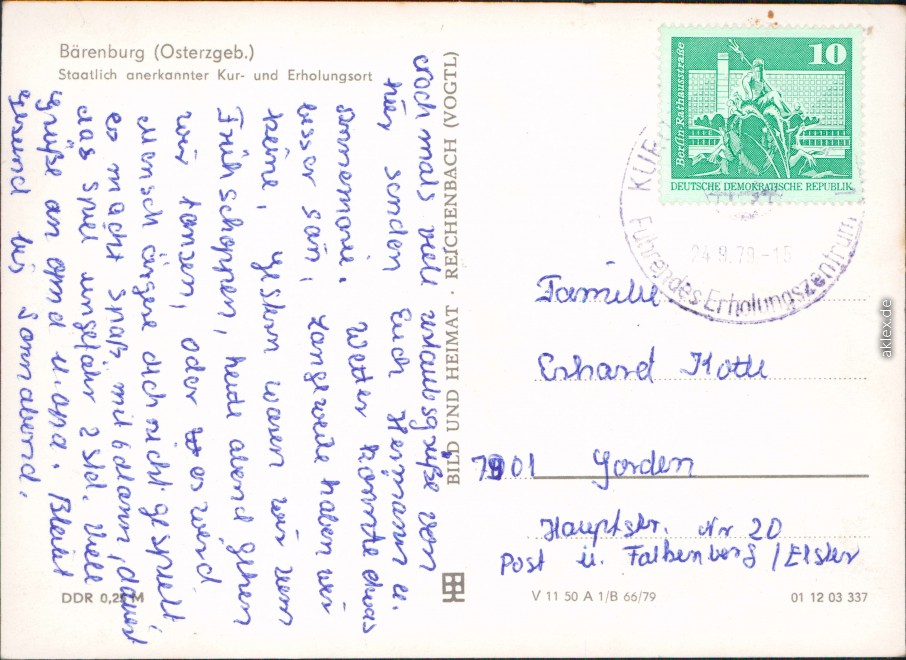 Bärenburg (Osterzgeb.)
Staatlich anerkannter Kur- und Erholungsort
Nochmals viele urlaubsgrüße von
hier senden Euch Hermann u.
Annemarie. Wetter konnte etwas
besser sein, Langweile haben wir
keine, gestern waren wir zum
Frühschoppen, heute abend gehen
wir tanzen, oder es wird
Mensch ärgere dich nicht gespielt
es macht spaß mit 6 Mann, dauert
das spiel ungefähr 2 Std. Viele
Grüße an omd u. opa. Bleibt
gesund bis Sonnabend.
BILD UND HEIMAT · REICHENBACH (VOGTL)
Berlin-Rathausstraße
10
DEUTSCHE DEMOKRATISCHE REPUBLIK
24.9.79-15
Führendes Erholungszentrum
Familie
Erhard Kotte
7901 Gorden
Hauptstr. Nr 20
Post ü. Falkenberg/Elster
DDR 0,25 M
V 11 50 A 1/B 66/79
01 12 03 337
aklex.de